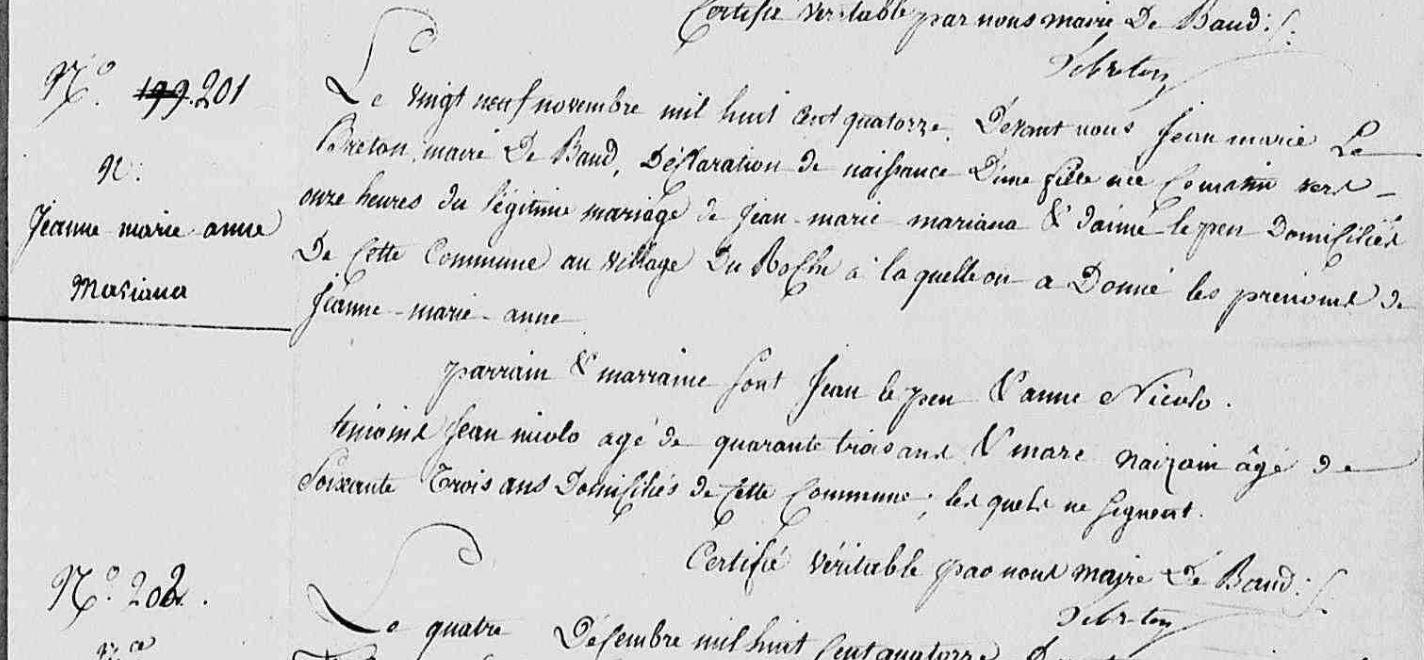 Certifié véritable par nous maire De Baud :
Lebreton
N.o 199. 201
N.
Jeanne marie anne
Mariana
Le vingt neuf novembre mil huit cent quatorze. Devant nous Jean marie Le
Breton, maire De Baud, Déclaration de naissance D'une fille née ce matin vers
onze heures du légitime mariage de Jean-marie mariana & d'aimé le pen Domiciliés
De Cette Commune au village Du Roch à laquelle on a Donné les prénoms de
Jeanne-marie-anne
parrain & marraine sont Jean le pen & anne Nicolo.
témoins Jean nicolo agé de quarante trois ans & marc naizain âgé de
Soixante Trois ans Domiciliés de Cette Commune ; lesquels ne signent.
Certifié véritable par nous maire De Baud :
Lebreton
N.o 202.
Le quatre Décembre mil huit Cent quatorze